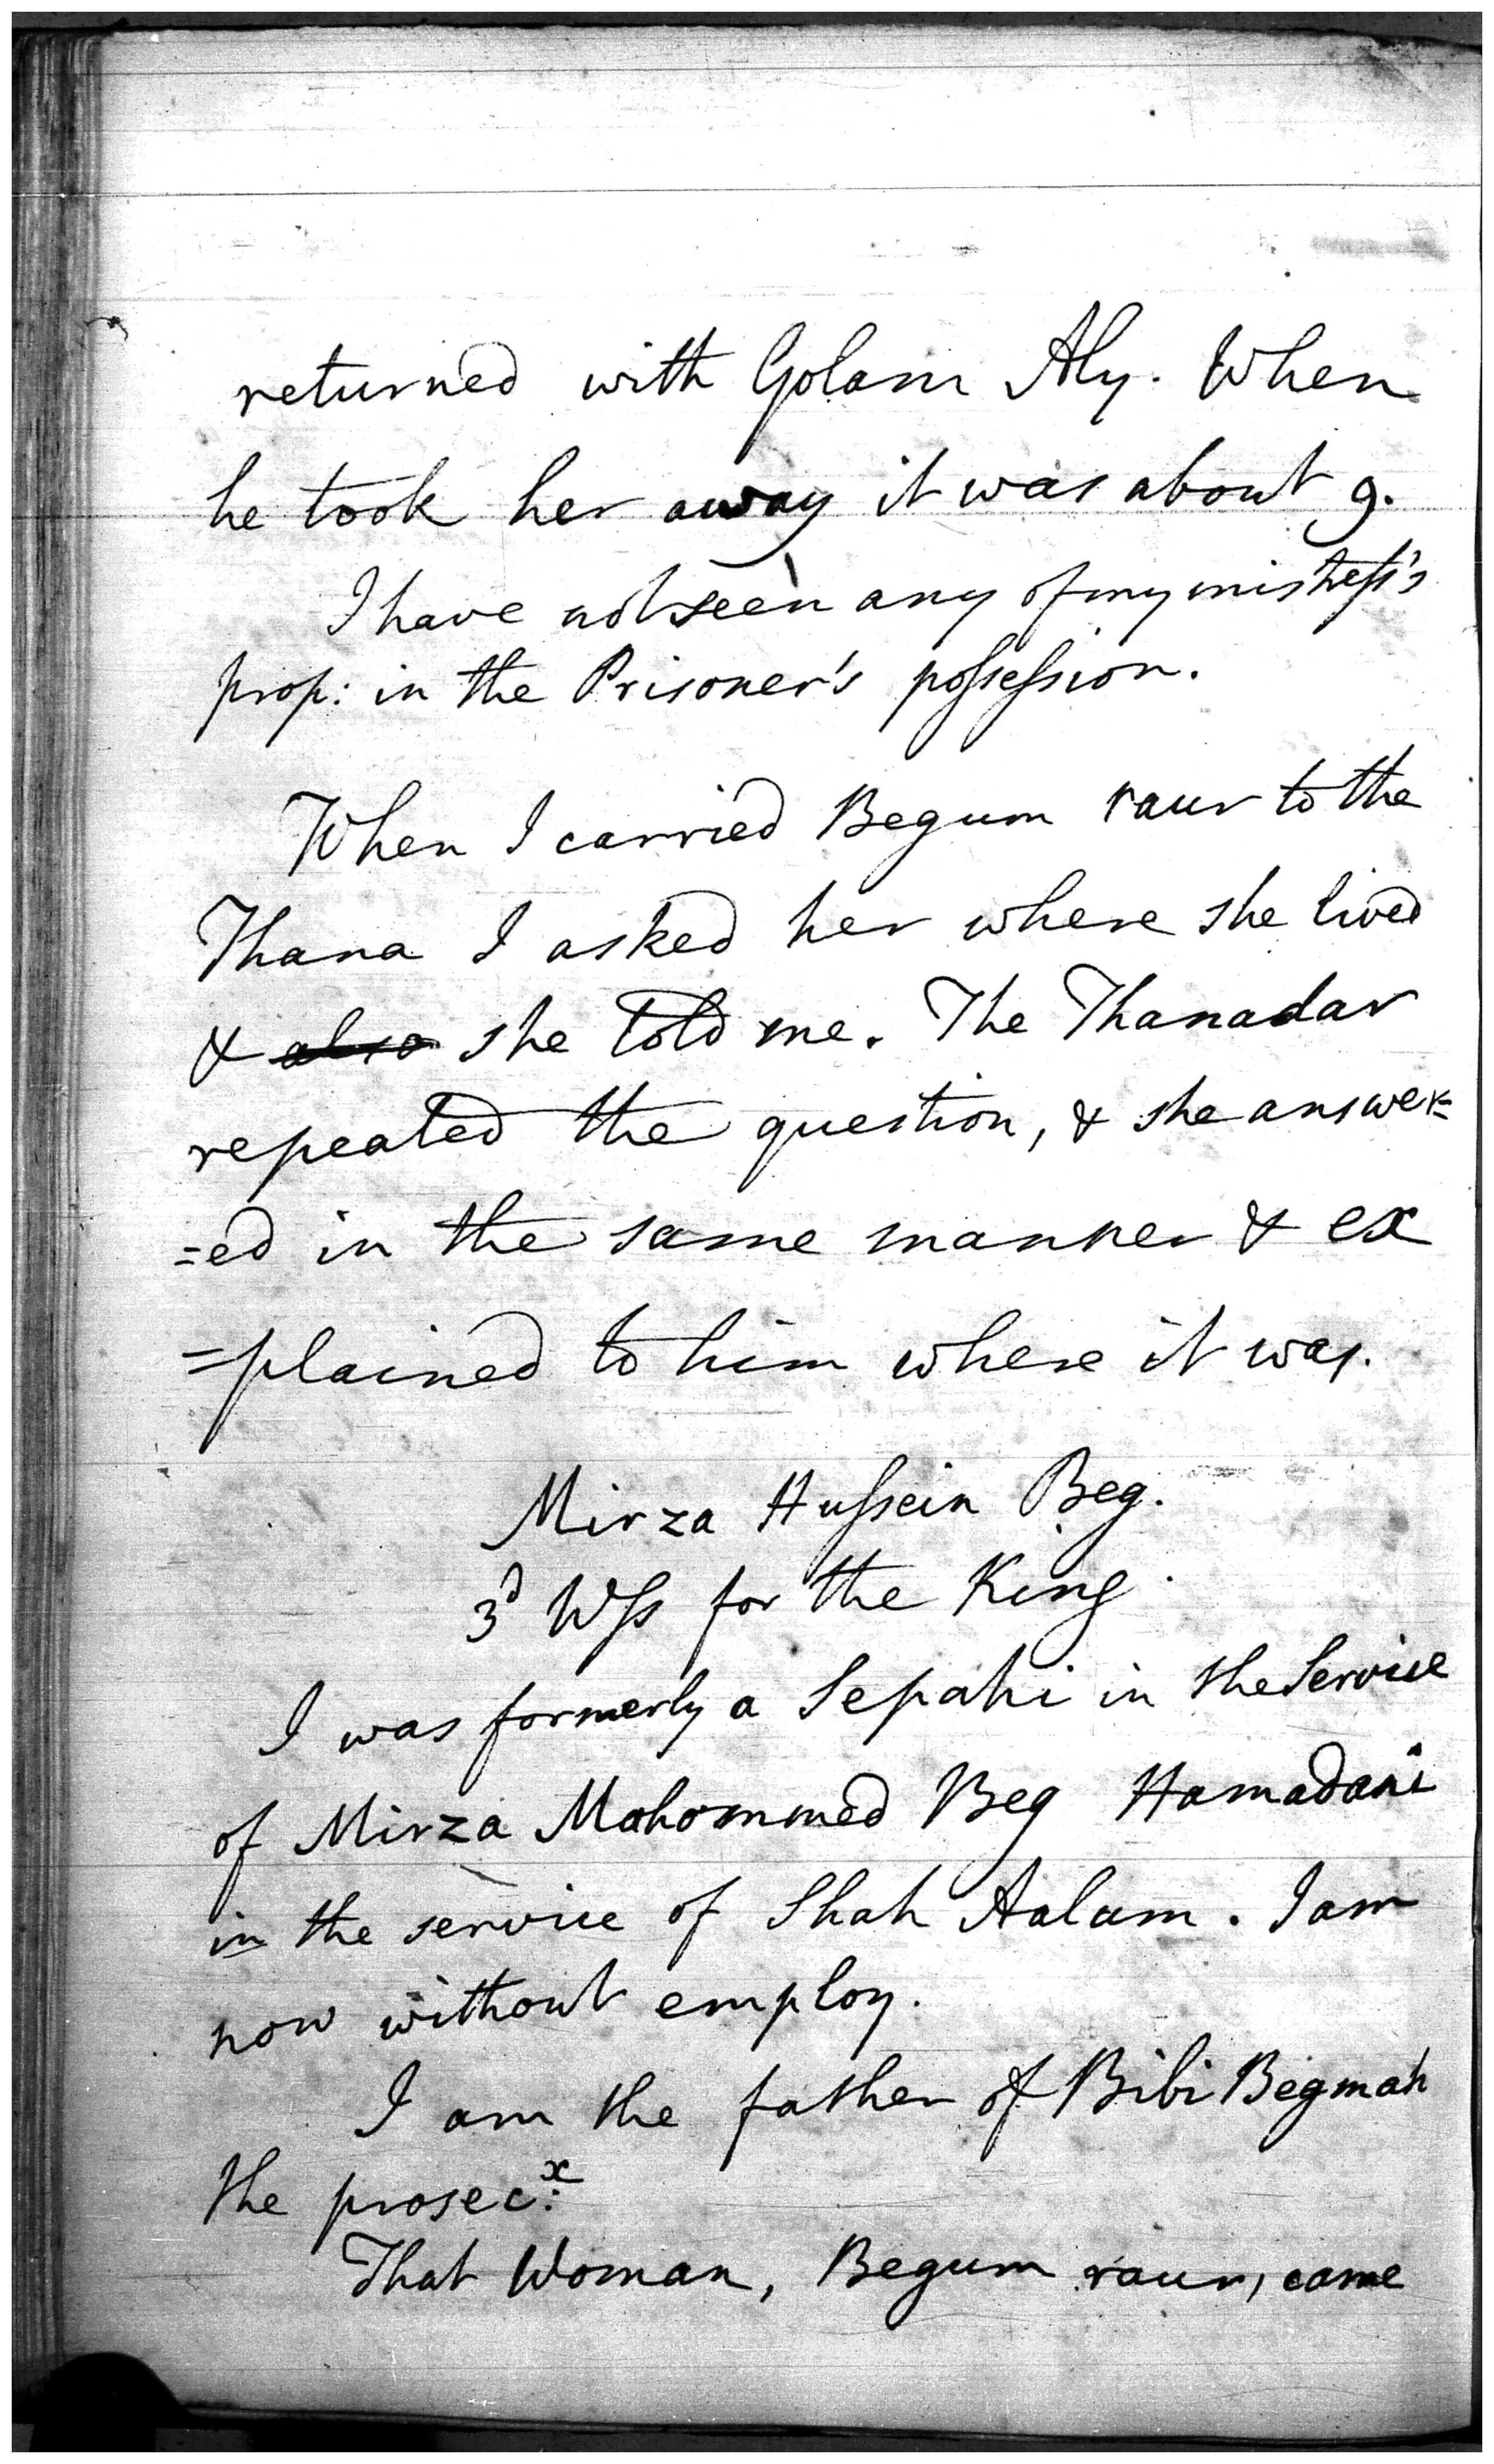 returned with Golam Aly. When
he took her away it was about 9.
I have not seen any of my mistress's
prop: in the Prisoner's possession.
When I carried Begum raur to the
Thana I asked her where she lived
& also she told me. The Thanadar
repeated the question, & she answer=
=ed in the same manner & ex
=plained to him where it was.
Mirza Hussein Beg.
3d Wss for the King.
I was formerly a Sepahi in the Service
of Mirza Mohommed Beg Hamadani
in the service of Shah Aalum. I am
now without employ.
I am the father of Bibi Begmah
the prosec:x
That Woman, Begum raur, came